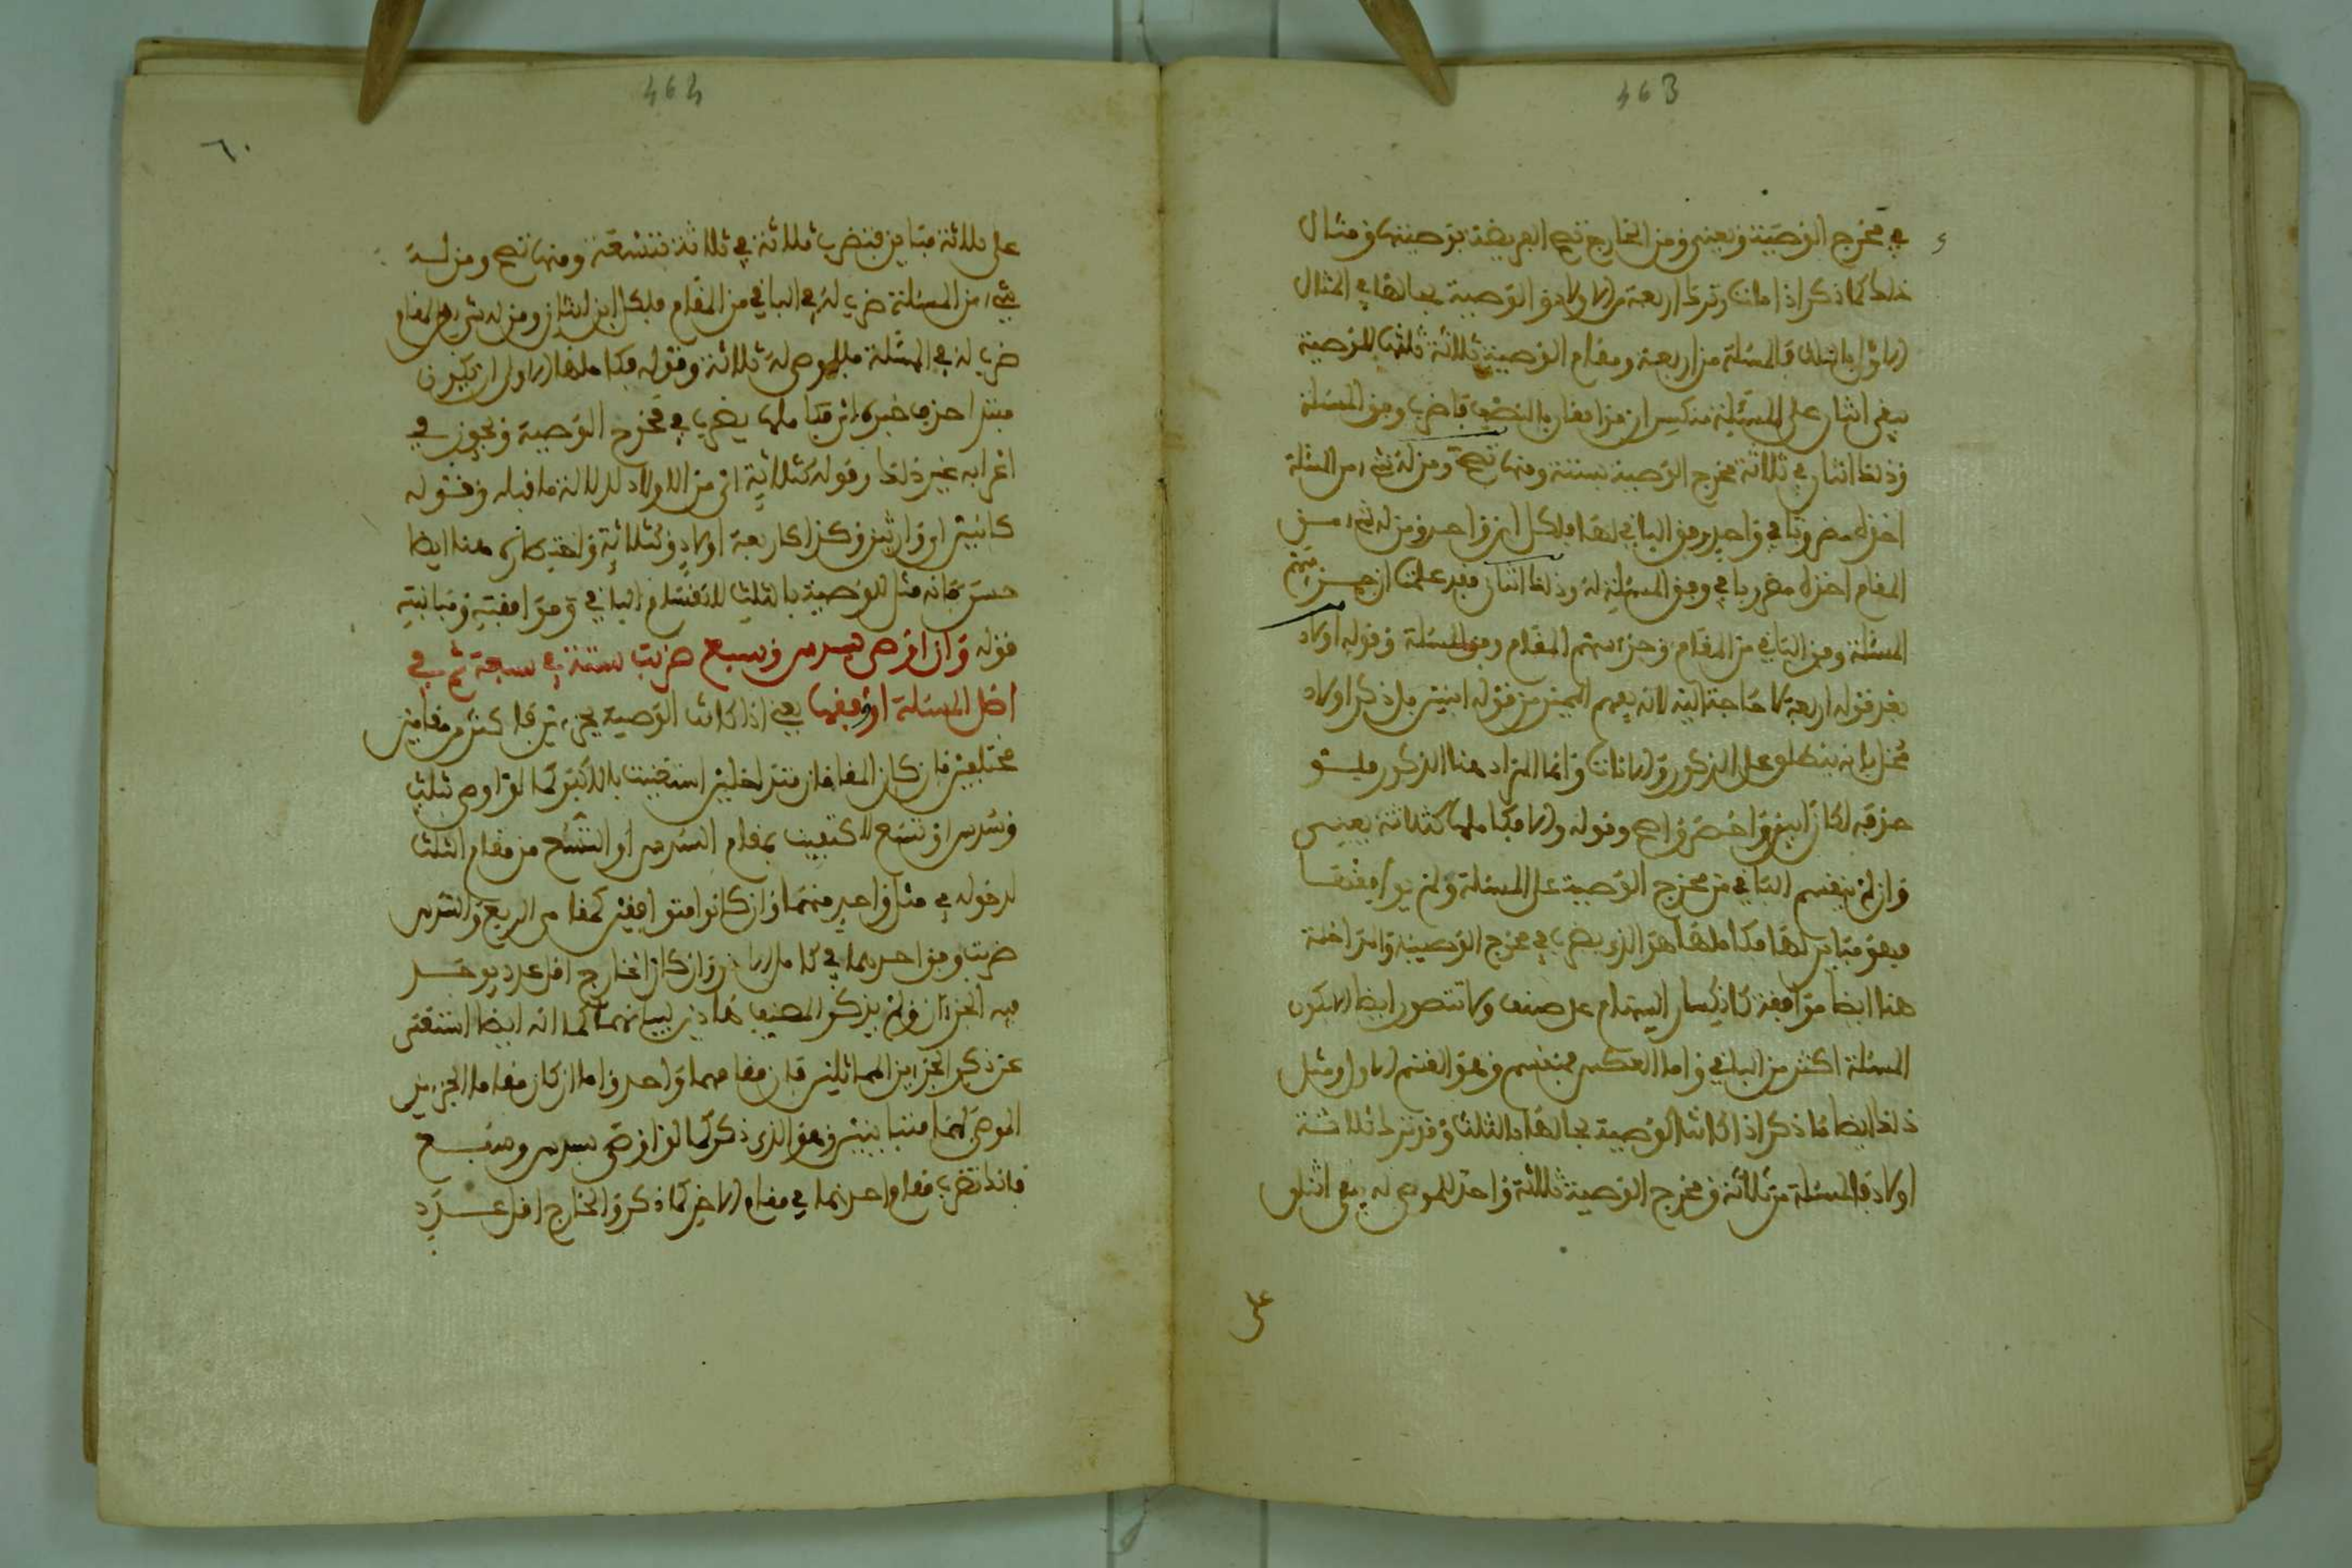 463
في مخرج الوصية ويعني ومن الخارج تصح الفريضة بوصيتها ومثال
ذلك كما ذكر اذا مات وترك اربعة من الاولاد والوصية بحالها في المثال
الاول بالثلث فالمسئلة من اربعة ومقام الوصية ثلاثة ثلثها للوصية
يبقى اثنان على المسئلة منكسران موافقان بالنصف فاضرب وفق المسئلة
وذلك اثنان في ثلاثة مخرج الوصية بستة ومنها تصح ومن له شيء من المسئلة
اخذه مضروبا في واحد وفق الباقي لها فلكل ابن واحد ومن له شيء من
المقام اخذه مضروبا في وفق المسئلة له وذلك اثنان فقد علمت ان جزء سهم
المسئلة وفق الباقي من المقام وجزء سهم المقام وفق المسئلة وقوله اولاد
بعد قوله اربعة لا حاجة اليه لانه يفهم المميز من قوله ابنين بل ذكر اولاد
مخل بانه ينطلق على الذكور والاناث وانما المراد هنا الذكور فلو
حذفه لكان ابين واخصر واصح وقوله والا فكاملها كثلاثة يعني
وان لم ينقسم الباقي من مخرج الوصية على المسئلة ولم يوافقها
فهو مباين لها فكاملها هو الذي يضرب في مخرج الوصية والمداخلة
هنا ايضا موافقة كانكسار السهام على صنف ولا تتصور ايضا الا بكون
المسئلة اكثر من الباقي واما العكس فمنقسم وهو القسم الاول ومثل
ذلك ايضا ما ذكر اذا كانت الوصية بحالها بالثلث وقد ترك ثلاثة
اولاد فالمسئلة من ثلاثة ومخرج الوصية ثلاثة واحد للموصى له يبقى اثنان
على
464
٦٠
على ثلاثة مباين فتضرب ثلاثة في ثلاثة بتسعة ومنها تصح ومن له
شيء من المسئلة ضرب له في الباقي من المقام فلكل ابن اثنان ومن له شيء من المقام
ضرب له في المسئلة فللموصى له ثلاثة وقوله فكاملها الاولى ان يكون
مبتدا حذف خبره اي فكاملها يضرب في مخرج الوصية ويجوز في
اعرابه غير ذلك وقوله كثلاثة اي من الاولاد لدلالة ما قبله وقوله
كابنين او وارثين وكذا كاربعة اولاد وكثلاثة هنا ايضا
حسن فانه مثل للوصية بالثلث لانقسام الباقي وموافقته ومباينته
قوله وان اوصى بسدس وسبع ضربت ستة في سبعة ثم في
اصل المسئلة او وفقها يعني اذا كانت الوصية بجزءين فاكثر من مقامين
مختلفين فان كان المقامان متداخلين استغنيت بالاكبر كما لو اوصى بثلث
وسدس او تسع لاكتفيت بمقام السدس او التسع من مقام الثلث
لدخوله في مثل واحد منهما وان كانوا متوافقين كمقامي الربع والسدس
ضربت وفق احدهما في كامل الاخر وان كان الخارج اقل عدد يوجد
فيه الجزءان ولم يذكر المصنف هاذين لبيانهما كما انه ايضا استغنى
عن ذكر الجزءين المماثلين فان مقامهما واحد واما ان كان مقاما الجزءين
الموصى لهما متباينين وهو الذي ذكر كما لو اوصى بسدس وسبع
فانك تضرب مقام احدهما في مقام الاخر كما ذكر والخارج اقل عدد